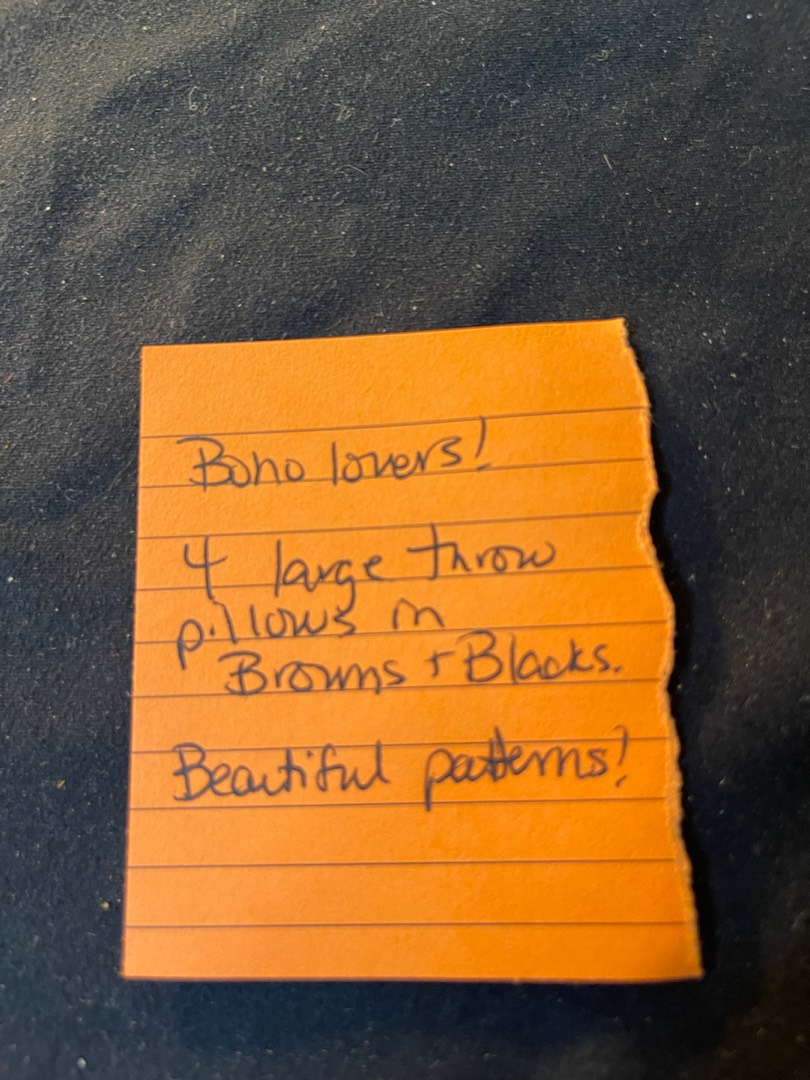 Boho lovers!
4 large throw
pillows in
Browns + Blacks.
Beautiful patterns!